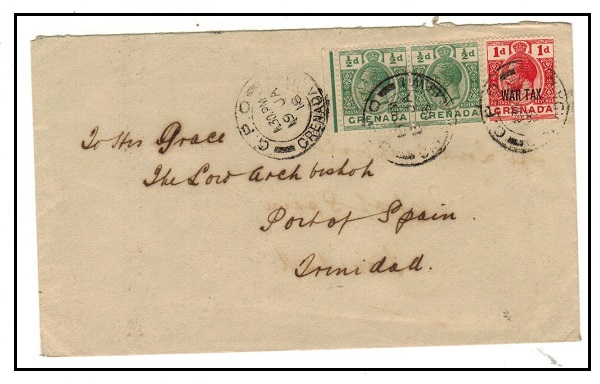 ½d ½d ½d ½d 1d 1d
WAR TAX
GRENADA GRENADA GRENADA
G.P.O. GRENADA
4.30 PM
19 JA
To His Grace
The Lord Archbishop
Port of Spain.
Trinidad.